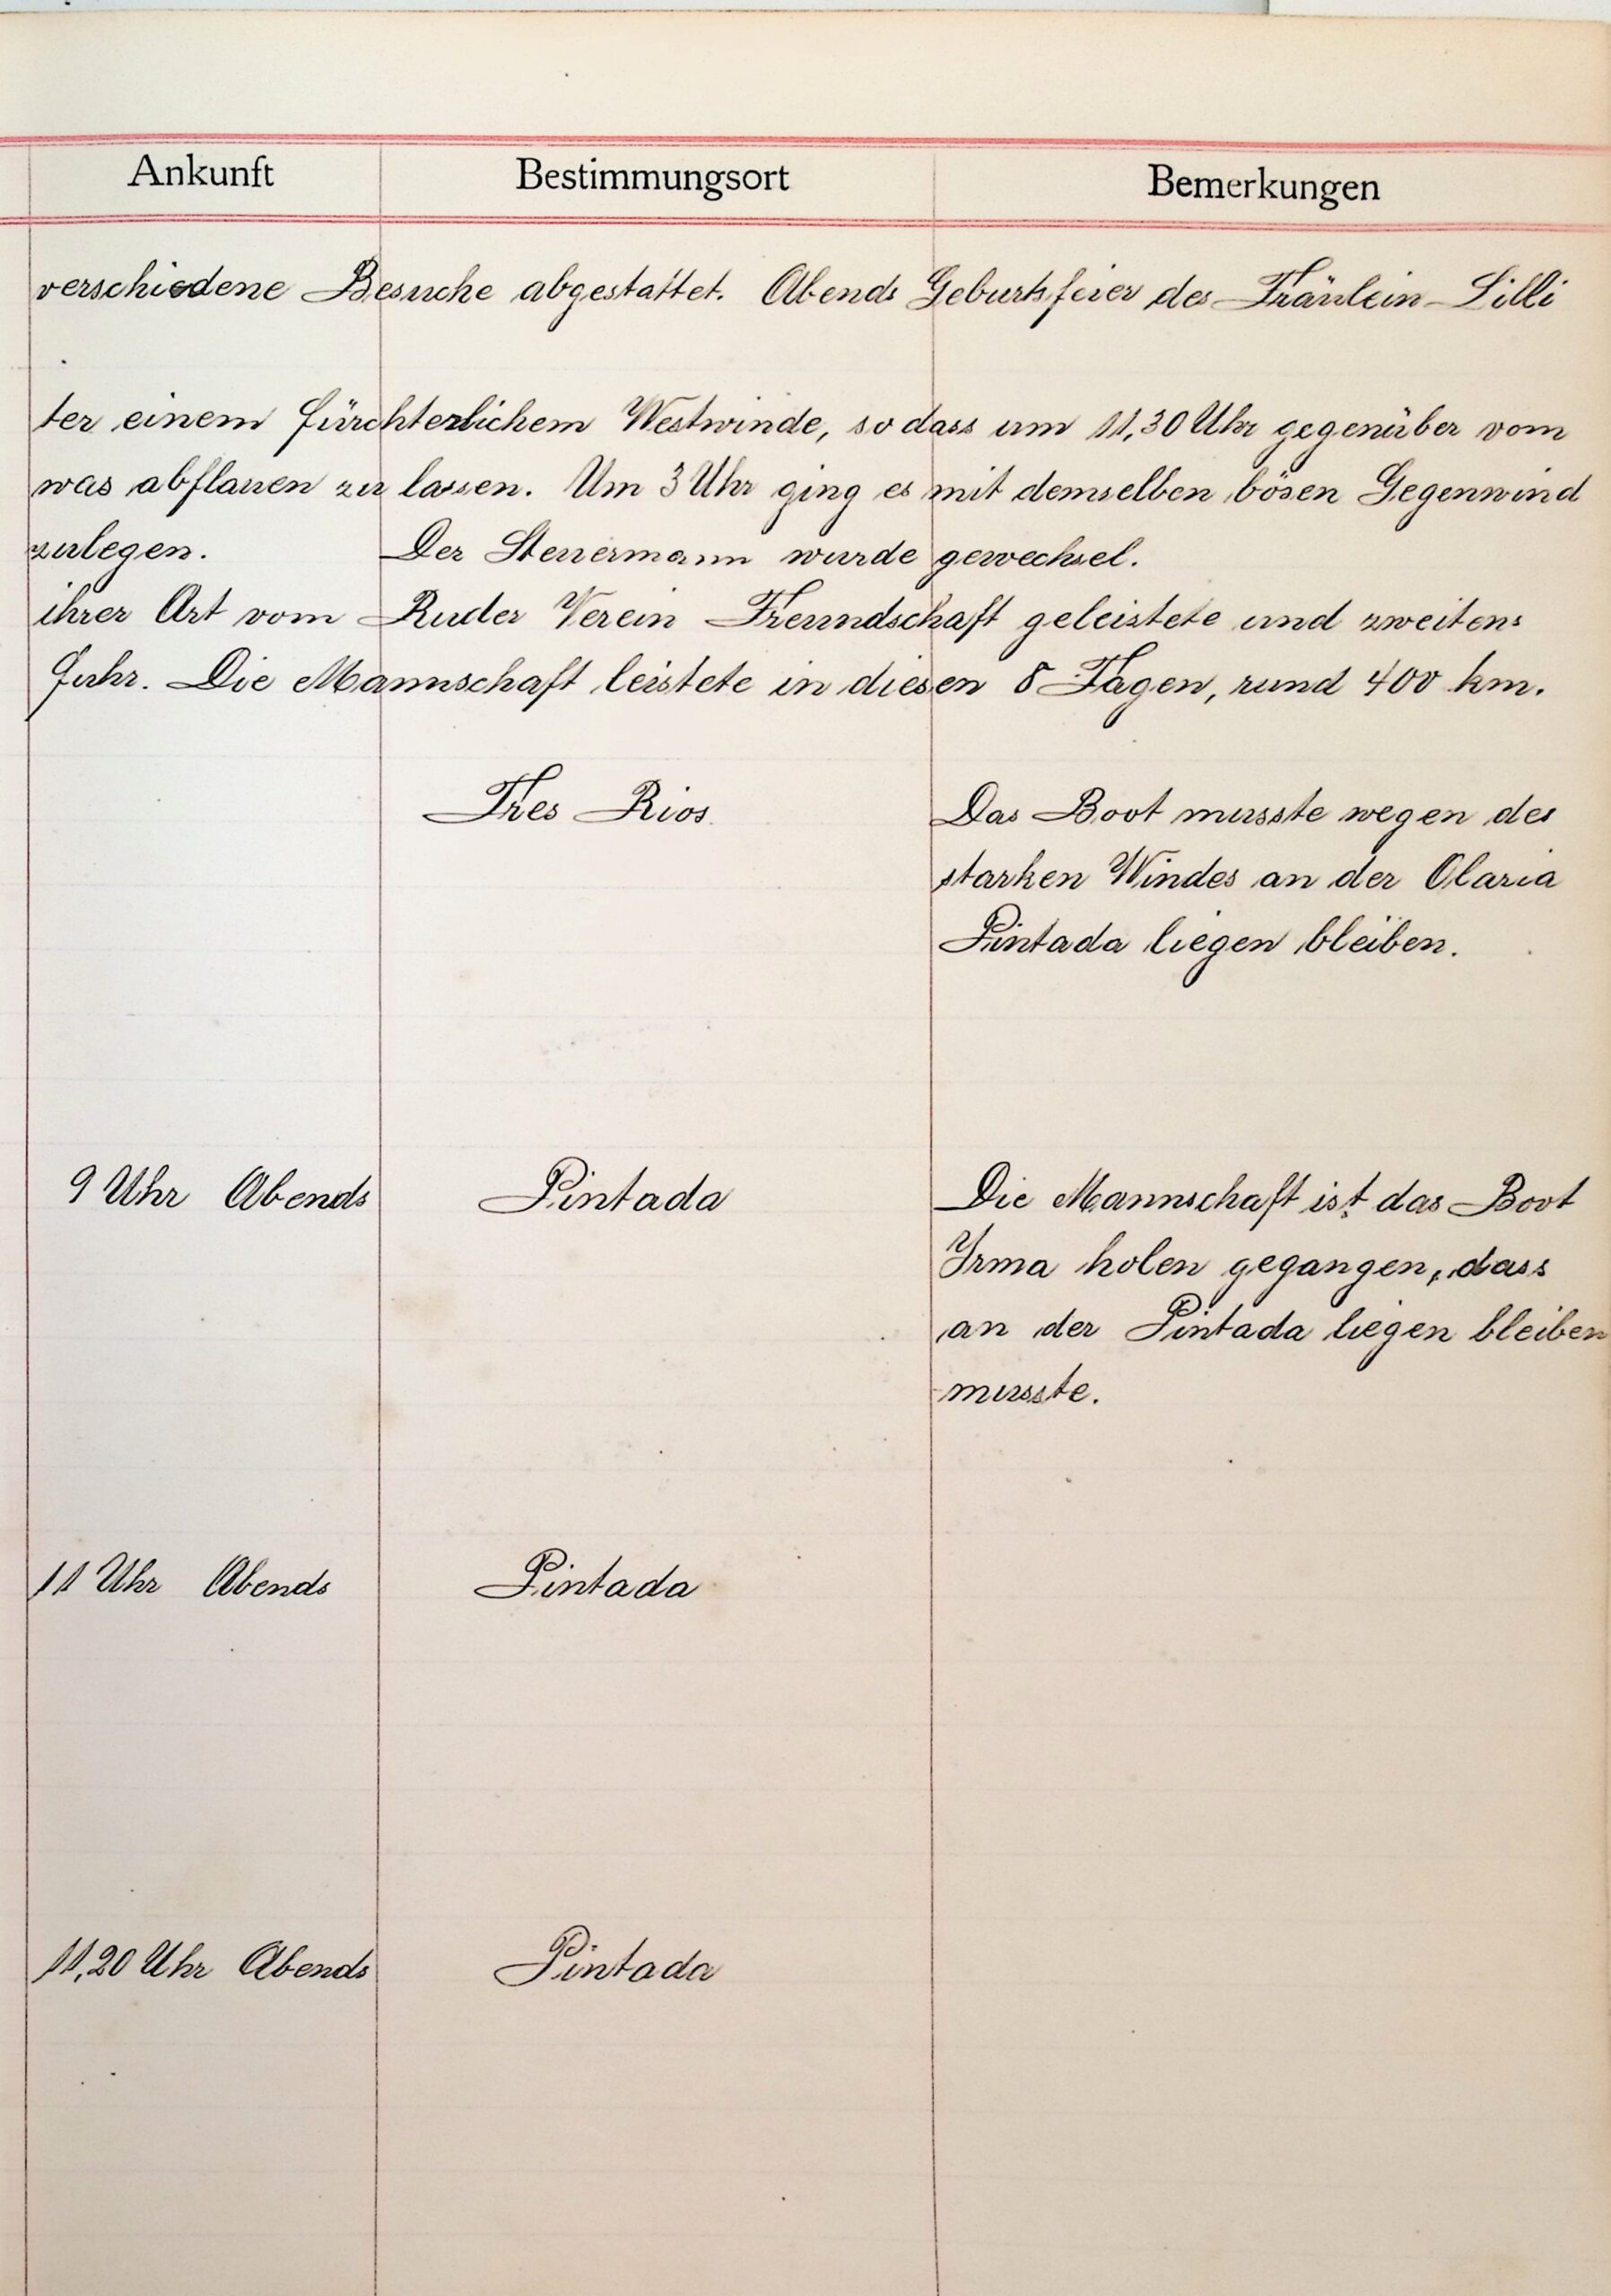 Ankunft Bestimmungsort Bemerkungen
verschiedene Besuche abgestattet. Abends Geburtsfeier des Fräulein Lilli
ter einem fürchterlichem Westwinde, so dass um 11,30 Uhr gegenüber vom
was abflauen zu lassen. Um 3 Uhr ging es mit demselben bösen Gegenwind
zulegen. Der Steuermann wurde gewechsel.
ihrer Art vom Ruder Verein Freundschaft geleistete und zweitens
fuhr. Die Mannschaft leistete in diesen 8 Tagen, rund 400 km.
Tres Rios Das Boot musste wegen des
starken Windes an der Olaria
Pintada liegen bleiben.
9 Uhr Abends Pintada Die Mannschaft ist das Boot
Irma holen gegangen, dass
an der Pintada liegen bleiben
musste.
11 Uhr Abends Pintada
11,20 Uhr Abends Pintada